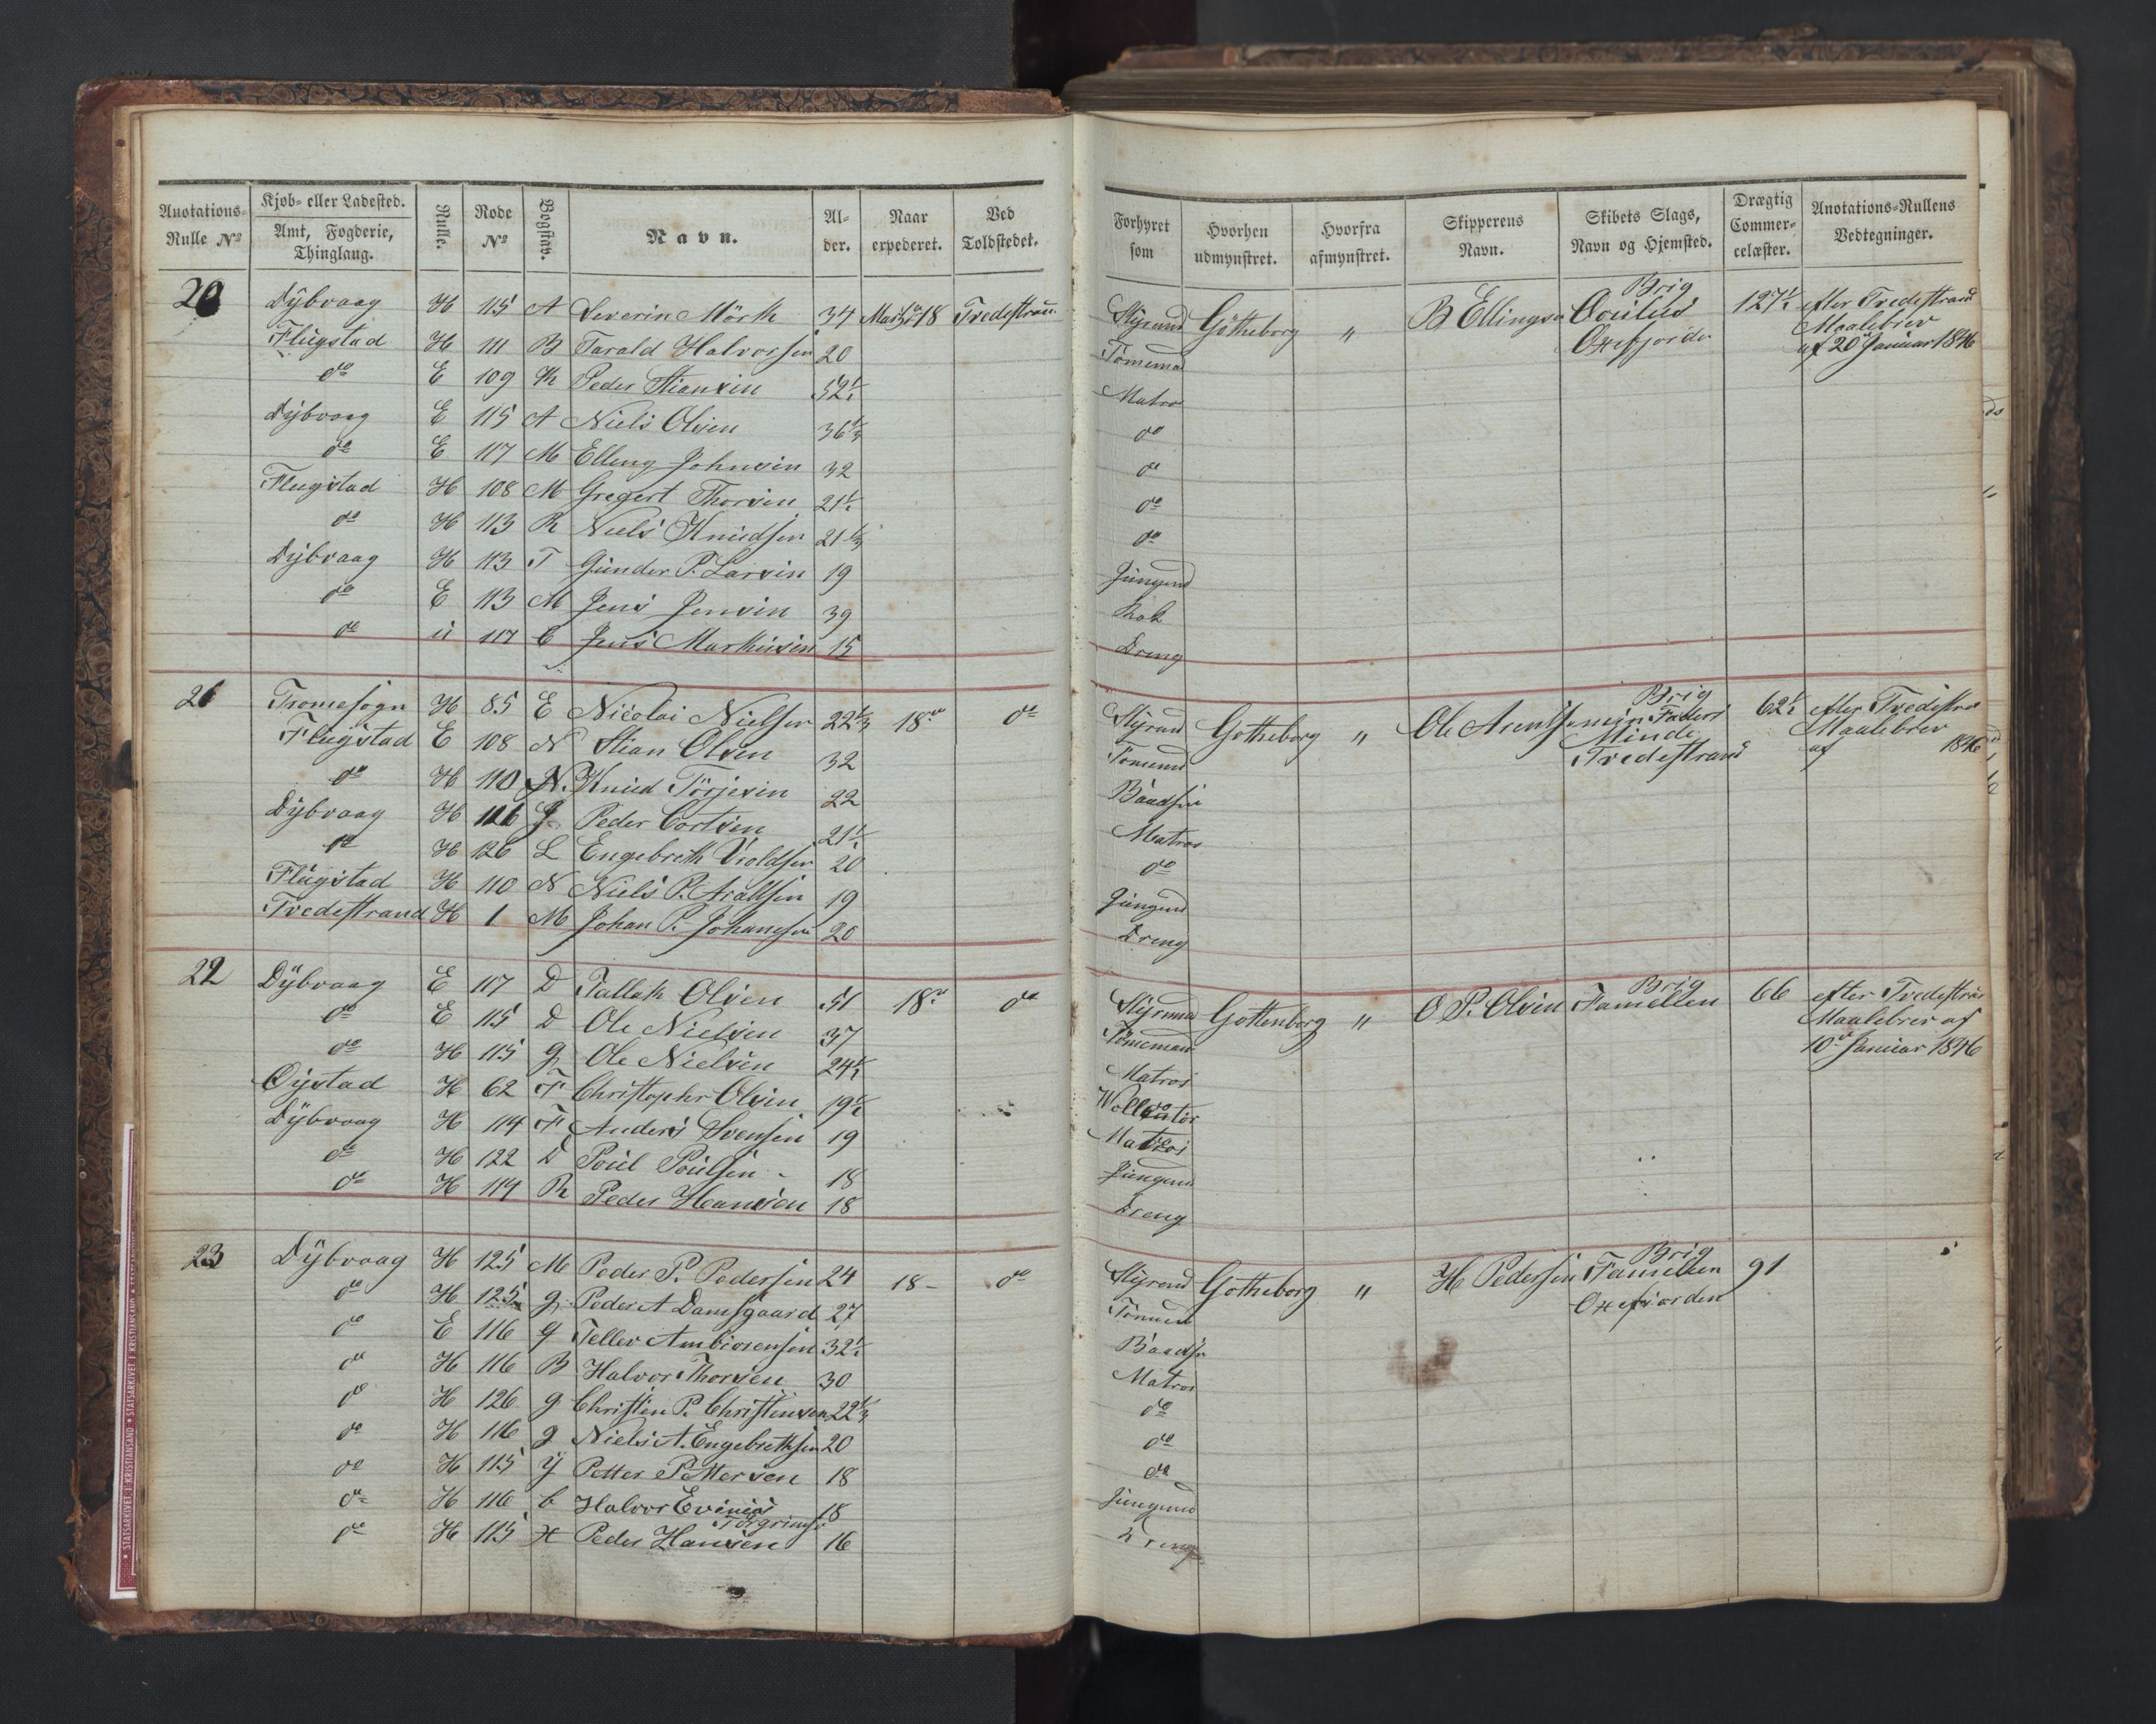 Anotations-Rulle No
Kjøb- eller Ladested.
Amt, Fogderie, Thinglang.
Rulle.
Rode No
Bogstav.
Navn.
Alder.
Naar expederet.
Ved Toldstedet.
20 Dybvaag H 115 A Severin Mörk 34 Marts 18 Tvedestran
Flugstad H 111 B Tarald Halvorsen 20
do E 109 K Peder Stiansen 52½
Dybvaag E 115 A Niels Olsen 36
do E 117 M Elling Johnsen 32
Flugstad H 108 M Gregert Thorsen 21½
do H 113 R Niels Knudsen 21
Dybvaag H 113 T Gunder P. Larsen 19
do E 113 M Jens Jensen 39
do u 117 C Jens Markusen 15
21 Tromesogn H 85 E Nicolai Nielsen 22 18de do
Flugstad E 108 N Stian Olsen 32
do H 110 N. Knud Törjesen 22
Dybvaag H 126 J Peder Cortsen 21½
do H 126 L Engebreth 20
Flugstad H 110 N Niels P. 19
Tvedestrand H 1 M Johan P. Johansen 20
22 Dybvaag E 117 D Tallak Olsen 51 18de do
do E 115 D Ole Nielsen 37
do H 115 g Ole Nielsen 24½
Oystad H 62 F Christopher Olsen 19½
Dybvaag H 114 F Anders Svensen 19
do H 122 D Poul Poulsen 18
do H 114 R Peder Hansen 18
23 Dybvaag H 125 M Peder P. Pedersen 24 18 do
do H 125 g Peder A Damsgaard 27
do E 116 g Teller Ambiorensen 32½
do H 116 B Halvor Thorsen 30
do H 126 g Christen P. Christensen 22
do H 116 g Niels A. Engebrethsen 20
do H 115 y Petter Pettersen 18
do H 116 b Halvor Evinias 18
Torgrims
do H 115 H Peder Hansen 16
* STATSARKIVET I KRISTIANSAND * STATSARKIVET I KRISTIANSAND
Forhyret som
Hvorhen udmynstret.
Hvorfra afmynstret.
Skipperens Navn.
Skibets Slags, Navn og Hjemsted.
Drægtig Commercelæster.
Anotations-Rullens Vedtegninger.
Brig
Styrmd Götheborg " B Ellingsen 127½ efter Tvedestrand
Tømemd Oxefjorden Maalebrev
af 20 Januar 1846
Matros
do
do
do
do
Jungmd
Kok
Dreng
Brig
Styrmd Gotheborg " Ole Arentsen min Faders 62½ efter Tvedestra
Tømemd Minde Maalebrev
Tvedestrand af 1846
Baadsm
Matros
do
Jungmd
Dreng
Brig
Styrmd Gottenborg " O P. Olsen Familien 66 efter Tvedestran
Tømemand Maalebrev af
10 Januar 1846
Matros
Matros
Jungmd
Dreng
Brig
Styrmd Gotheborg " H Pedersen Familien 91
Tømmd Oxefiorden
Baadsm
Matros
do
do
do
Jungmd
Dreng